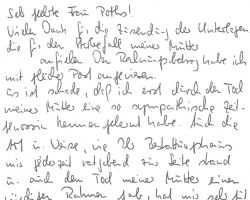 Sehr geehrte Frau Poths!
Vielen Dank für die Zusendung der Unterlagen
die für den Sterbefall meiner Mutter
anfielen. Den Rechnungsbetrag habe ich
mit gleicher Post angewiesen.
Es ist schade, daß ich erst durch den Tod
meiner Mutter eine so sympathische Zeit-
genossin kennen gelernt habe. Auch die
Art u. Weise, wie Ihr Bestattungshaus
mir jederzeit zur Seite stand
u. auch dem Tod meiner Mutter einen
würdigen Rahmen gab, hat mir sehr